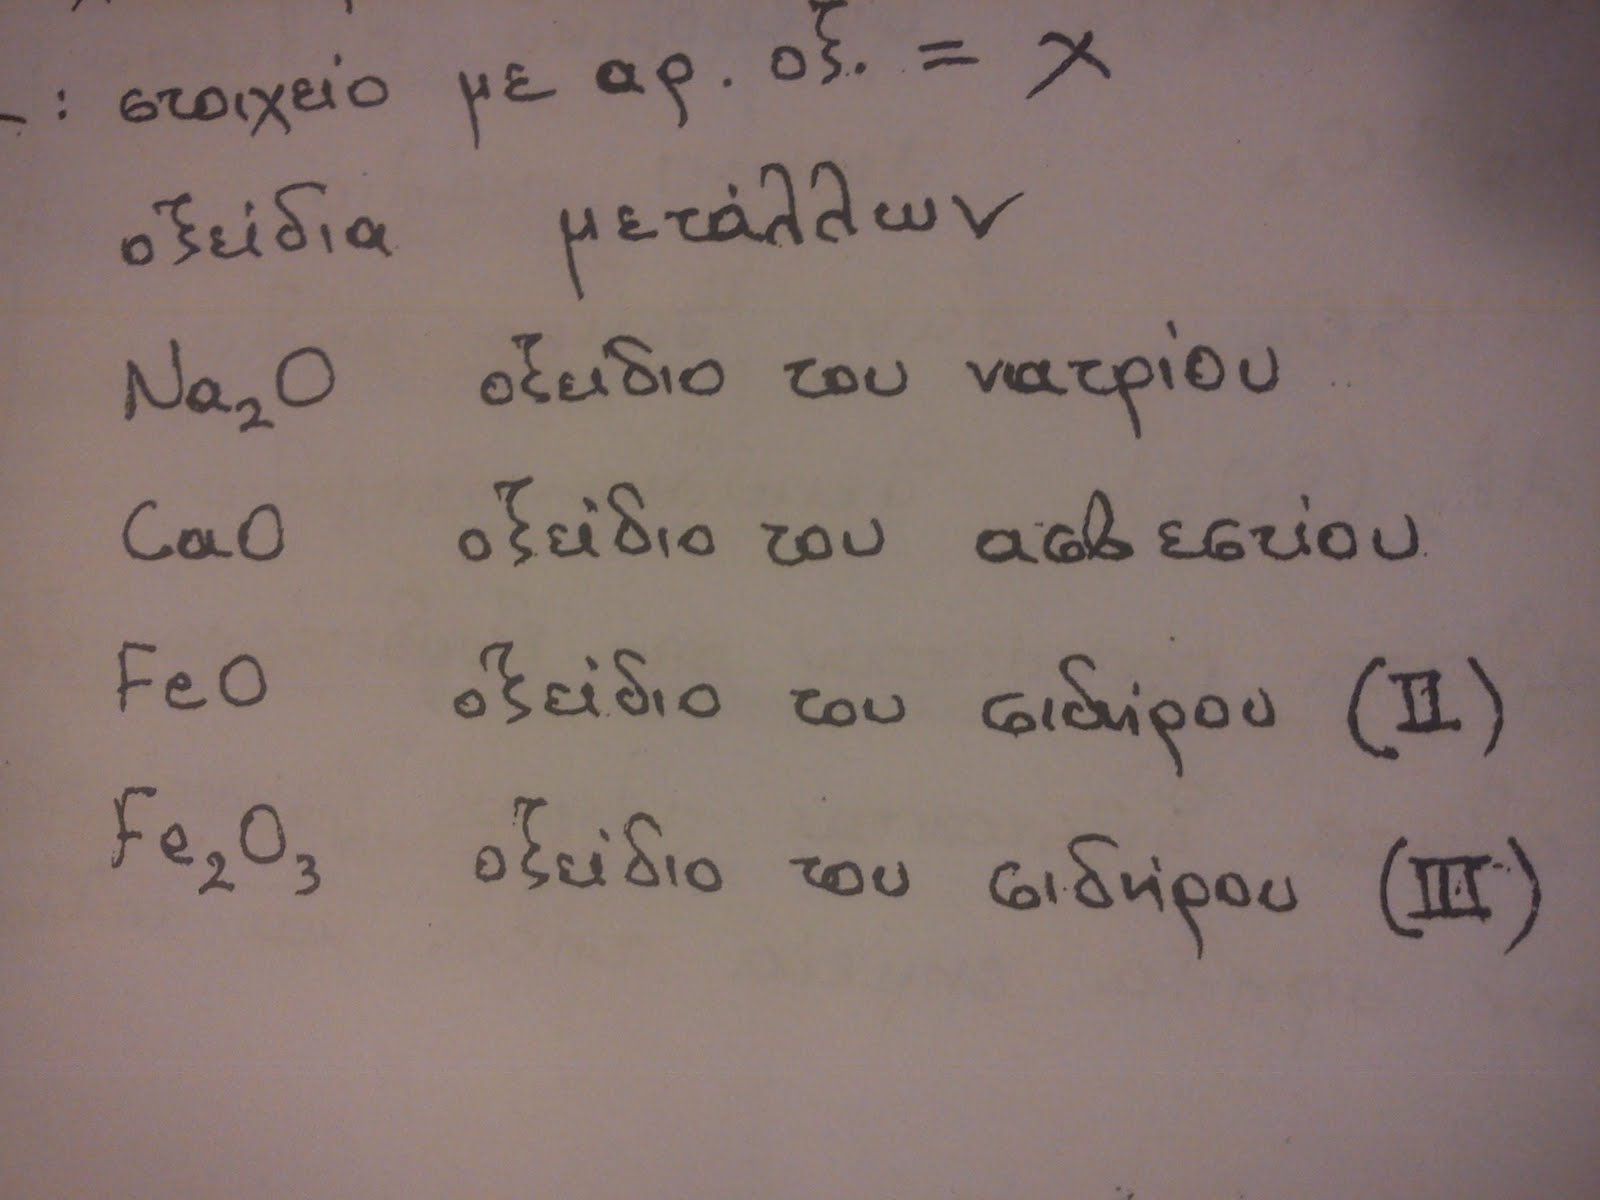 : στοιχείο με αρ. οξ. = x
οξείδια μετάλλων
Na₂O οξείδιο του νατρίου
CaO οξείδιο του ασβεστίου
FeO οξείδιο του σιδήρου (II)
Fe₂O₃ οξείδιο του σιδήρου (III)